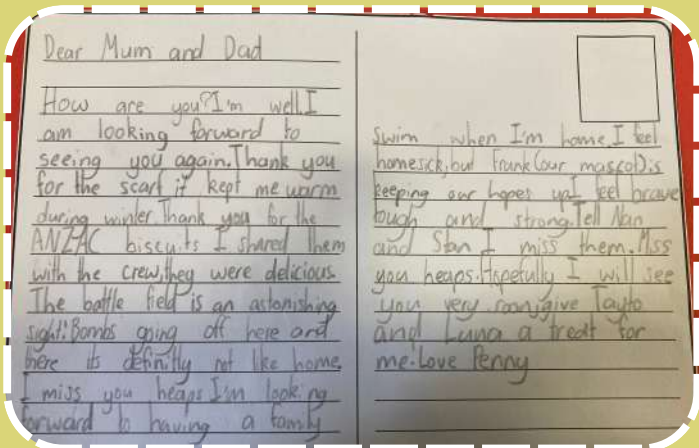 Dear Mum and Dad
How are you? I'm well. I
am looking forward to
seeing you again. Thank you
for the scarf it kept me warm
during winter. Thank you for the
ANZAC biscuits I shared them
with the crew, they were delicious.
The battle field is an astonishing
sight! Bombs going off here and
there its definitly not like home.
I miss you heaps I'm looking
forward to having a family
swim when I'm home. I feel
homesick, but Frank (our mascot) is
keeping our hopes up. I feel brave
tough and strong. Tell Nan
and Stan I miss them. Miss
you heaps. Hopefully I will see
you very soon, give Tayto
and Luna a treat for
me. Love Penny